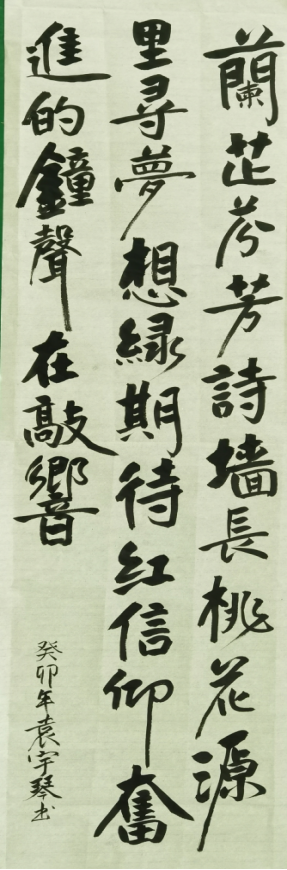 蘭芷芬芳詩墙長桃花源
里尋夢想緑期待紅信仰奮
進的鐘聲在敲響
癸卯年袁宇琴书